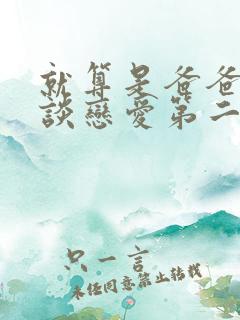 就算是爸爸
談戀愛第二
只一言
未经同意禁止转载